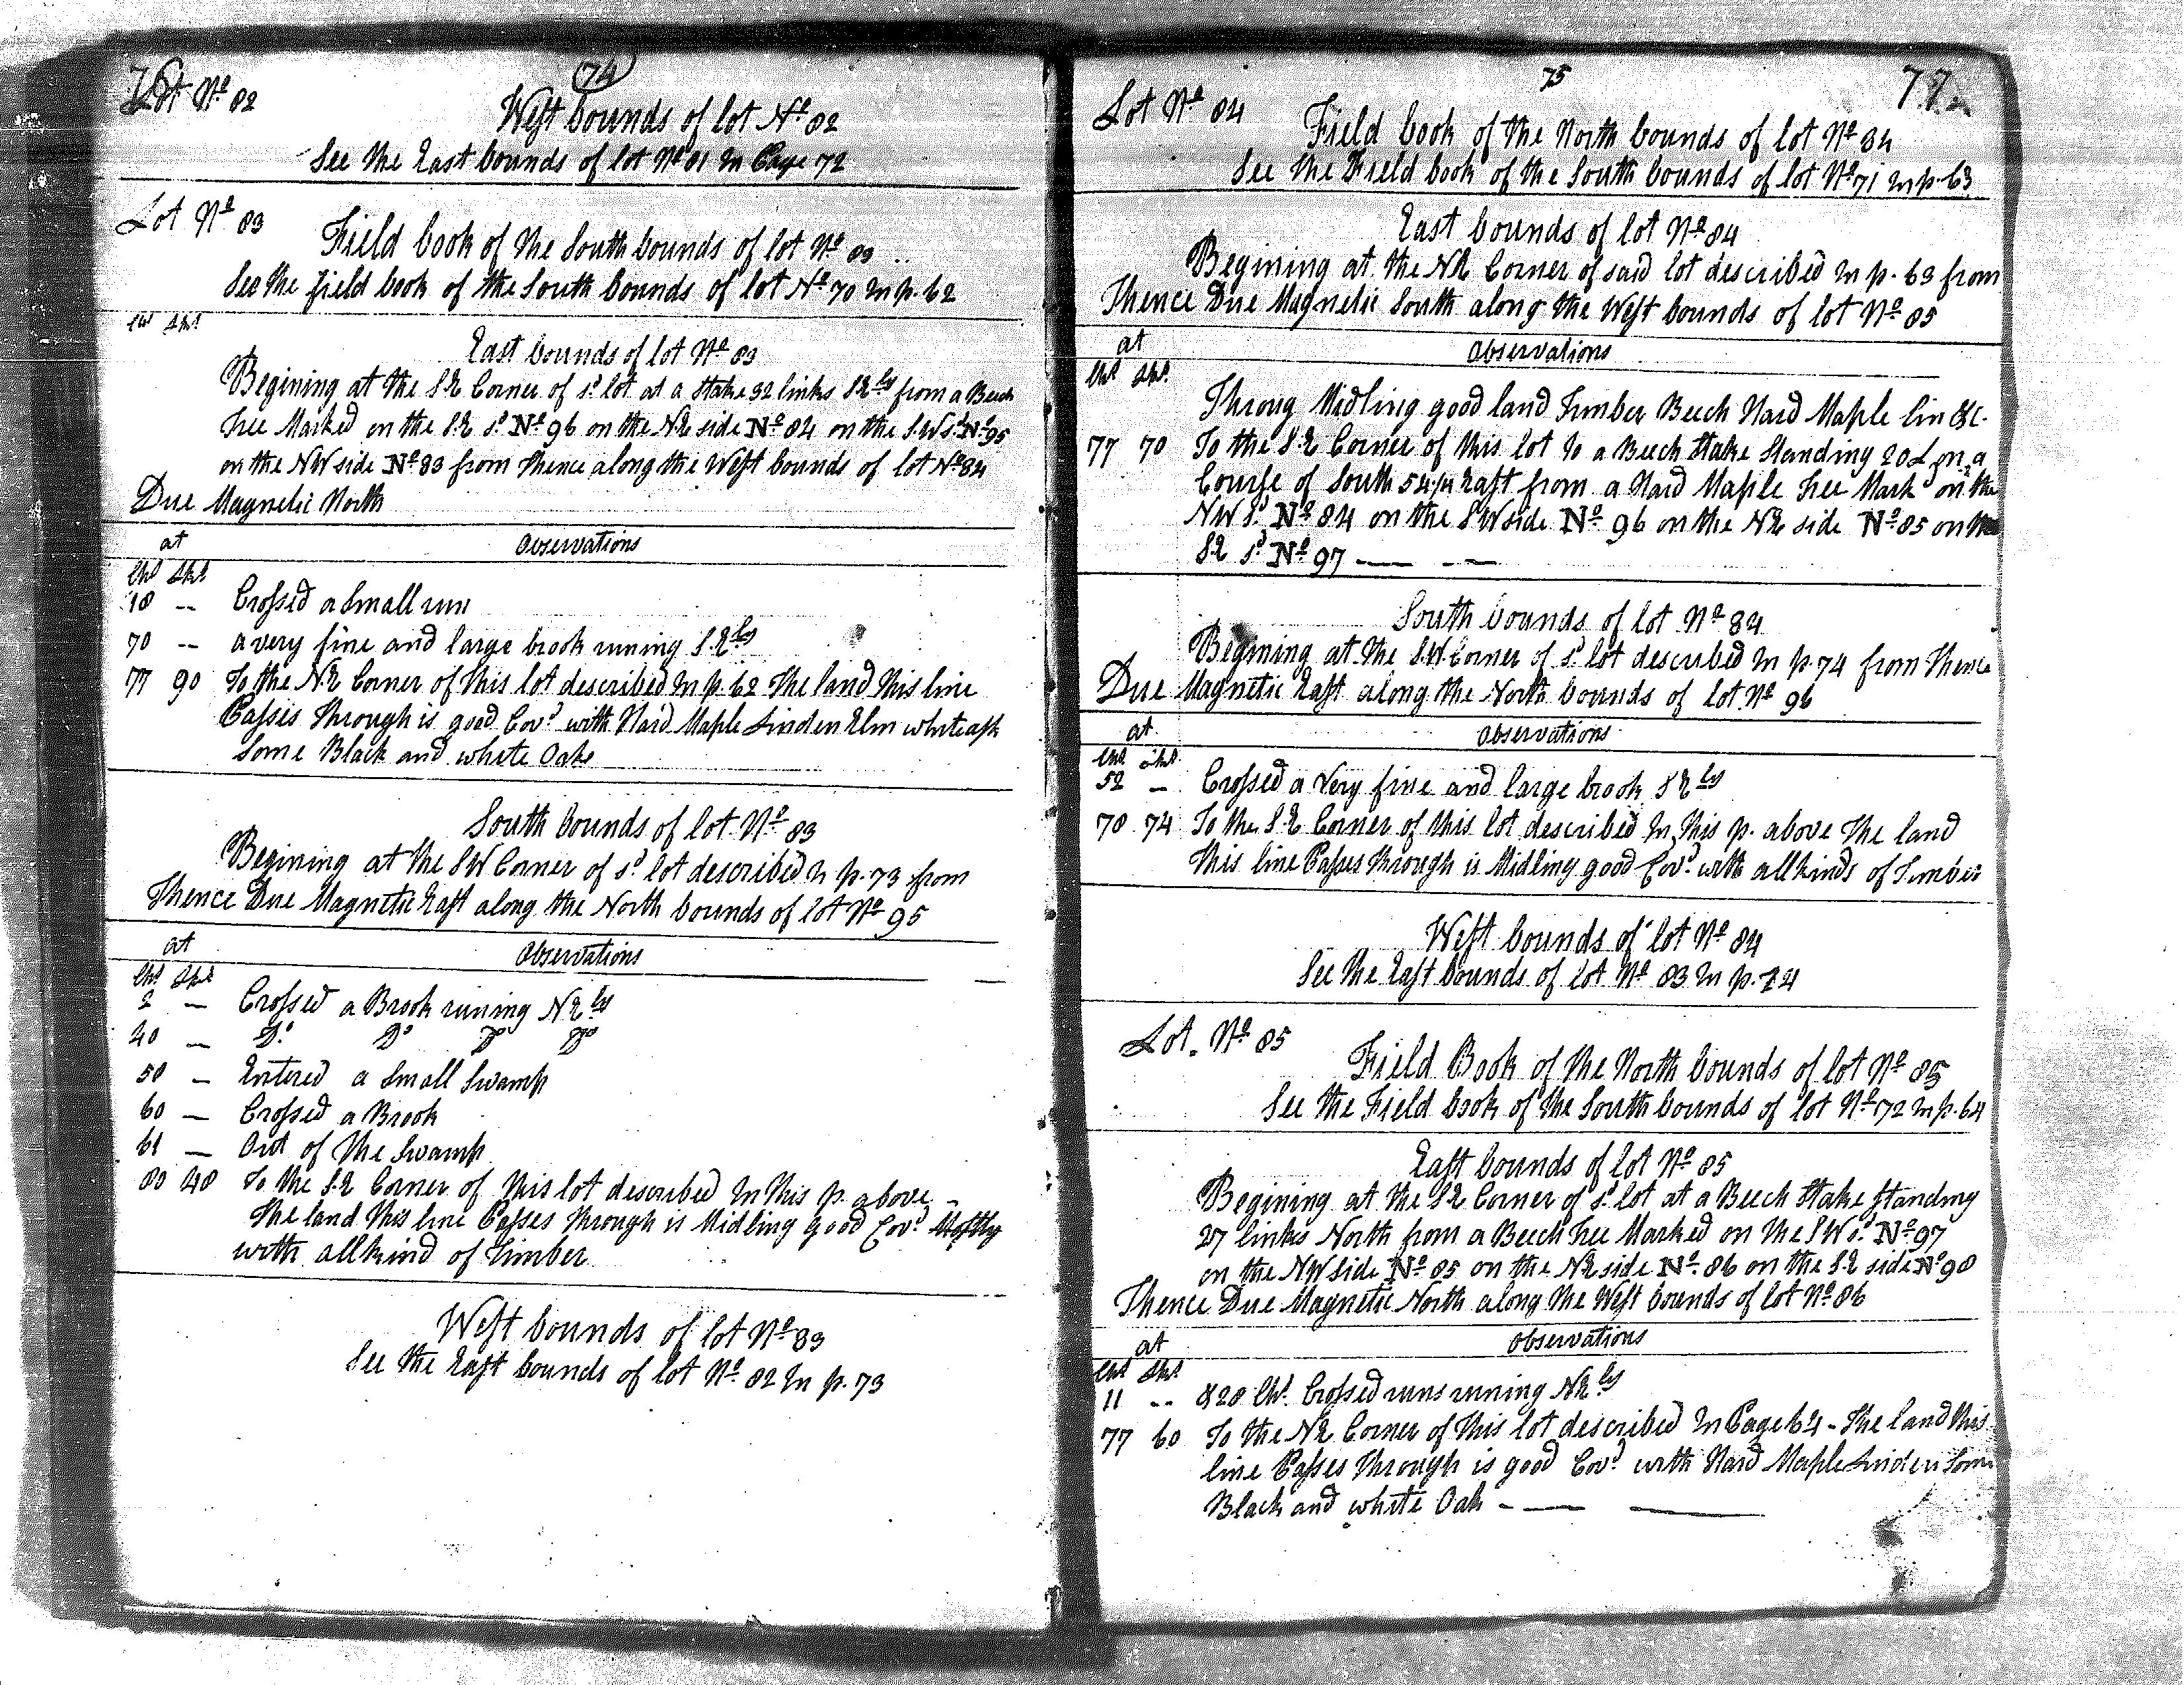 76
74
Lot Nº 82
West bounds of lot Nº 82
See the East bounds of lot Nº 81 In Page 72
Lot Nº 83
Field book of the South bounds of lot Nº 83
See the field book of the South bounds of lot Nº 70 In p. 62
Chs Lks
East bounds of lot Nº 83
Begining at the S.E Corner of sd lot at a Stake 32 links SEly from a Beech
tree Marked on the S.E sd Nº 96 on the N.E side Nº 84 on the S.W sd Nº 95
on the NW side Nº 83 from thence along the West bounds of lot Nº 84
Due Magnetic North
at Observations
Chs Lks
18 -- Crossed a small run
70 -- a very fine and large brook runing S.Ely
77 90 To the N.E Corner of this lot described In p. 62 The land this line
Passes through is good Covd with Hard Maple Linden Elm white ash
Some Black and white Oaks
South bounds of lot Nº 83
Begining at the SW Corner of sd lot described In p. 73 from
Thence Due Magnetic East along the North bounds of lot Nº 95
at Observations
Chs Lks
2 -- Crossed a Brook runing NEly
40 -- Do Do Do Do
50 -- Entered a Small Swamp
60 -- Crossed a Brook
61 -- Out of the Swamp
80 48 To the S.E Corner of this lot described In this p. above -
The land this line Passes through is Midling good Covd Mostly
with all kind of Timber
West bounds of lot Nº 83
See the East bounds of lot Nº 82 In p. 73
75
77
Lot Nº 84
Field book of the North bounds of lot Nº 84
See the Field book of the South bounds of lot Nº 71 In p. 63
East bounds of lot Nº 84
Begining at the NE Corner of said lot described In p. 63 from
Thence Due Magnetic South along the West bounds of lot Nº 85
at Observations
Chs Lks
Throug Midling good land Timber Beech Hard Maple lin &c.
77 70 To the S.E Corner of this lot to a Beech Stake Standing 20 L on a
Course of South 54 1/4 East from a Hard Maple tree Markd on the
NW sd Nº 84 on the SW side Nº 96 on the N.E side Nº 85 on the
SE sd Nº 97 -- --
South bounds of lot Nº 84
Begining at the S.W. Corner of sd lot described In p. 74 from Thence
Due Magnetic East along the North bounds of lot Nº 96
at Observations
Chs Lks
52 -- Crossed a Very fine and large brook SEly
78 74 To the S.E Corner of this lot described In this p. above The land
this line Passes through is Midling good Covd with all kinds of Timber
West bounds of lot Nº 84
See the East bounds of lot Nº 83 In p. 74
Lot. Nº 85
Field Book of the North bounds of lot Nº 85
See the Field book of the South bounds of lot Nº 72 In p. 64
East bounds of lot Nº 85
Begining at the S.E Corner of sd lot at a Beech Stake standing
27 links North from a Beech tree Marked on the SW sd Nº 97
on the NW side Nº 85 on the NE side Nº 86 on the S.E side Nº 98
Thence Due Magnetic North along the West bounds of lot Nº 86
at Observations
Chs Lks
11 -- & 28 Chs Crossed runs runing NEly
77 60 To the N.E Corner of this lot described In Page 64 - The land this
line Passes through is good Covd with Hard Maple Linden Some
Black and white Oak - -- --